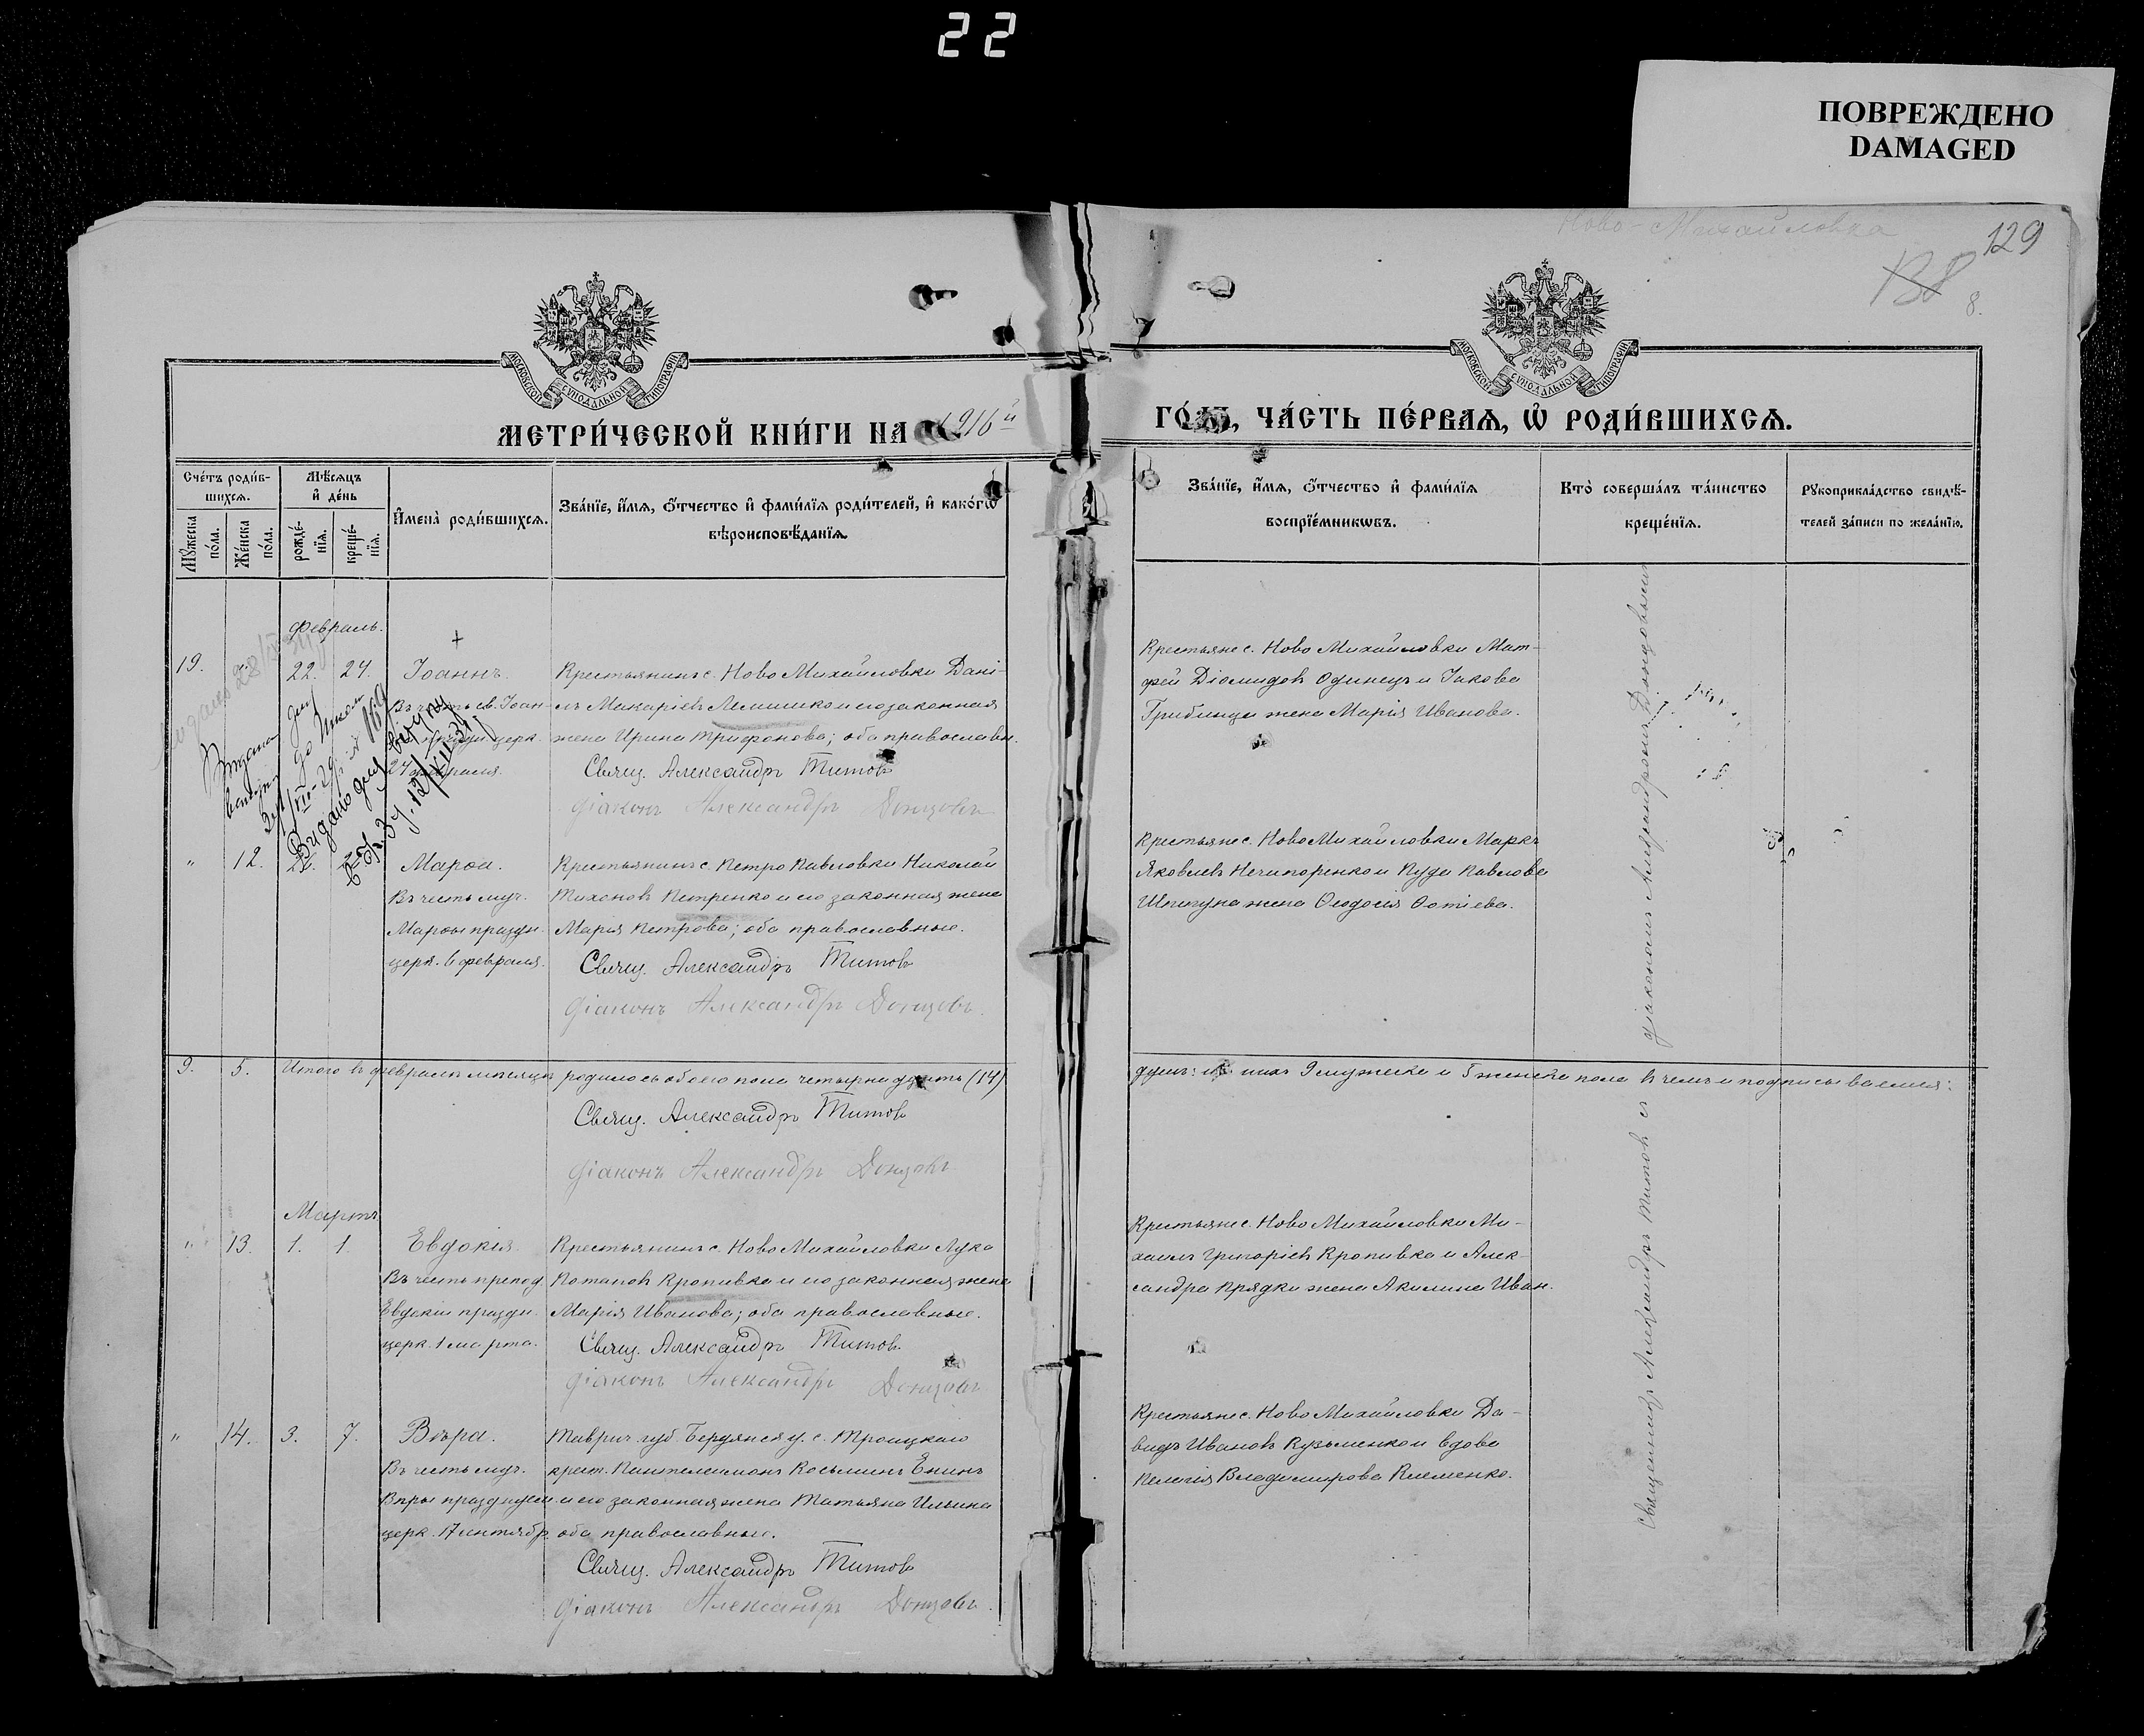 22
ПОВРЕЖДЕНО
DAMAGED
Ново-Михайловка
129
138
8.
МОСКОВСКОЙ СѴНОДАЛЬНОЙ ТИПОГРАФІИ
МОСКОВСКОЙ СѴНОДАЛЬНОЙ ТИПОГРАФІИ
МЕТРИ́ЧЕСКОЙ КНИ́ГИ НА 1916й
ГО́ДЪ, ЧА́СТЬ ПЕ́РВАѦ, Ѡ҆ РОДИ́ВШИХСѦ.
Сче́тъ роди́в-
шихсѧ.
Мꙋ́жеска по́ла.
Же́нска по́ла.
Мѣ́сѧцъ
и҆ де́нь
рожде́-
нїѧ.
креще́-
нїѧ.
И҆мена̀ роди́вшихсѧ.
Зва́нїе, и҆́мѧ, ѻ҆́тчество и҆ фами́лїѧ роди́телей, и҆ како́гѡ
вѣроисповѣ́данїѧ.
Зва́нїе, и҆́мѧ, ѻ҆́тчество и҆ фами́лїѧ
воспрїе́мникѡвъ.
Кто̀ соверша́лъ та́инство
креще́нїѧ.
Рꙋкоприкла́дство свидѣ́-
телей за́писи по жела́нїю.
Февраль.
19. " 22. 24. Іоаннъ.
Въ честь св. Іоан-
церк.
24 февраля.
Крестьянинъ с. Ново Михайловки Дані-
лъ Макаріевъ Лемишко и его законная
жена Ирина Трифонова; оба православн.
Свящ. Александръ Титовъ
Діаконъ Александръ Донцовъ
Крестьяне с. Ново Михайловки Мат-
фей Діомидовъ Одинецъ и Іакова
Грибинца жена Марія Иванова.
Видано для
" 12. 22. Марѳа.
Въ честь муч.
Марѳы праздн.
церк. 6 февраля.
Крестьянинъ с. Петро Павловки Николай
Тихоновъ Петренко и его законная жена
Марія Петрова; оба православные.
Свящ. Александръ Титовъ
Діаконъ Александръ Донцовъ.
Крестьяне с. Ново Михайловки Маркъ
Яковлевъ Нечипоренко и Павлова
жена Ѳеодосія
9. 5. Итого въ февралѣ мѣсяцѣ родилось обоего пола четырнадцать (14)
душъ: изъ нихъ 9 мужеска и 5 женска пола въ чемъ и подписываемся:
Свящ. Александръ Титовъ
Діаконъ Александръ Донцовъ
Мартъ
" 13. 1. 1. Евдокія.
Въ честь препод.
Евдокіи праздн.
церк. 1 марта.
Крестьянинъ с. Ново Михайловки Лука
Потаповъ Кропивка и его законная жена
Марія Иванова; оба православные.
Свящ. Александръ Титовъ
Діаконъ Александръ Донцовъ
Крестьяне с. Ново Михайловки Ми-
хаилъ Григоріевъ Кропивка и Алек-
сандра Прядки жена Акилина Иван.
" 14. 3. 7. Вѣра.
Въ честь муч.
Вѣры празднуем.
церк. 17 сентябр.
Таврич. губ. Бердянск. у. с. Троицкаго
крест. Пантелеимонъ Косьминъ Енинъ
и его законная жена Татьяна Ильина
оба православные.
Свящ. Александръ Титовъ
Діаконъ Александръ Донцовъ.
Крестьяне с. Ново Михайловки Да-
видъ Ивановъ Кузьменко и вдова
Пелагія Владимирова Клеменко.
Священникъ Александръ Титовъ съ діакономъ Александромъ Донцовымъ